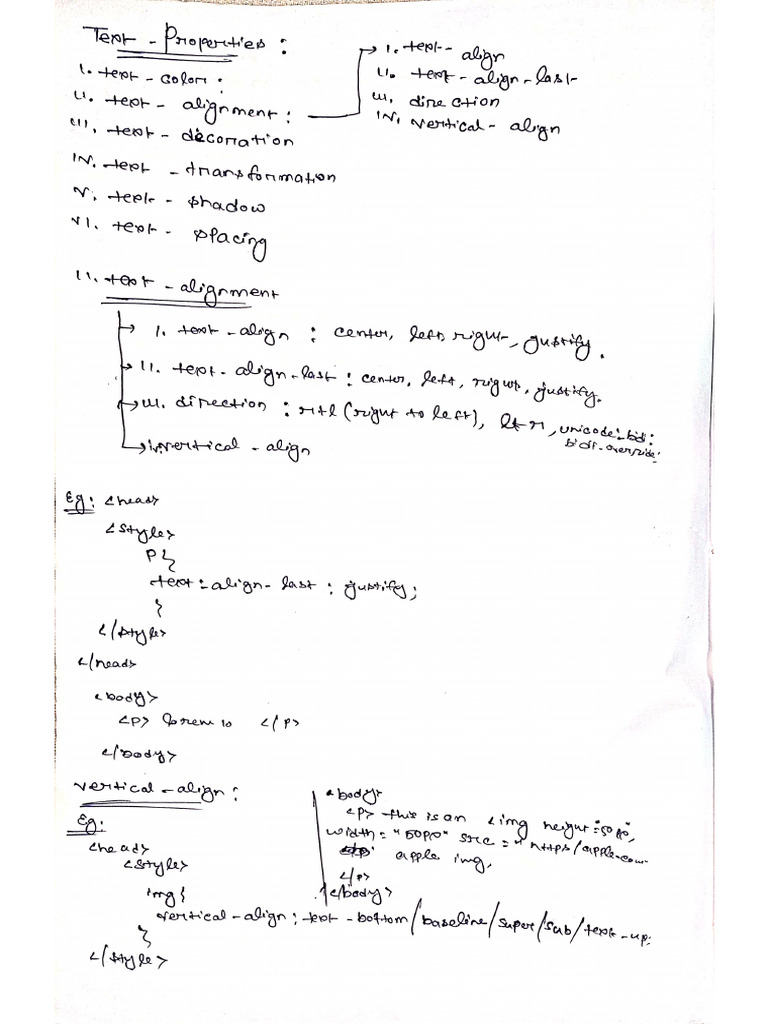 Text - Properties :
I. text - color :
II. text - alignment :
III. text - decorration
IV. text - transformation
V. text - shadow
VI. text - spacing
I. text - align
II. text - align - last
III. direction
IV. vertical - align
II. text - alignment
I. text - align : center, left, right, justify.
II. text - align - last : center, left, right, justify.
III. direction : rtl (right to left), ltr, unicode-bidi:
bidi-override:
iv. vertical - align
Eg: <head>
<style>
P{
text-align-last : justify;
}
</style>
</head>
<body>
<P> lorem 10 </P>
</body>
vertical - align :
Eg:
<head>
<style>
img{
vertical-align: text-bottom/baseline/super/sub/text-up.
}
</style>
<body>
<P> this is an <img height=
width = "50px" src = "https/apple.com
apple img.
</P>
</body>